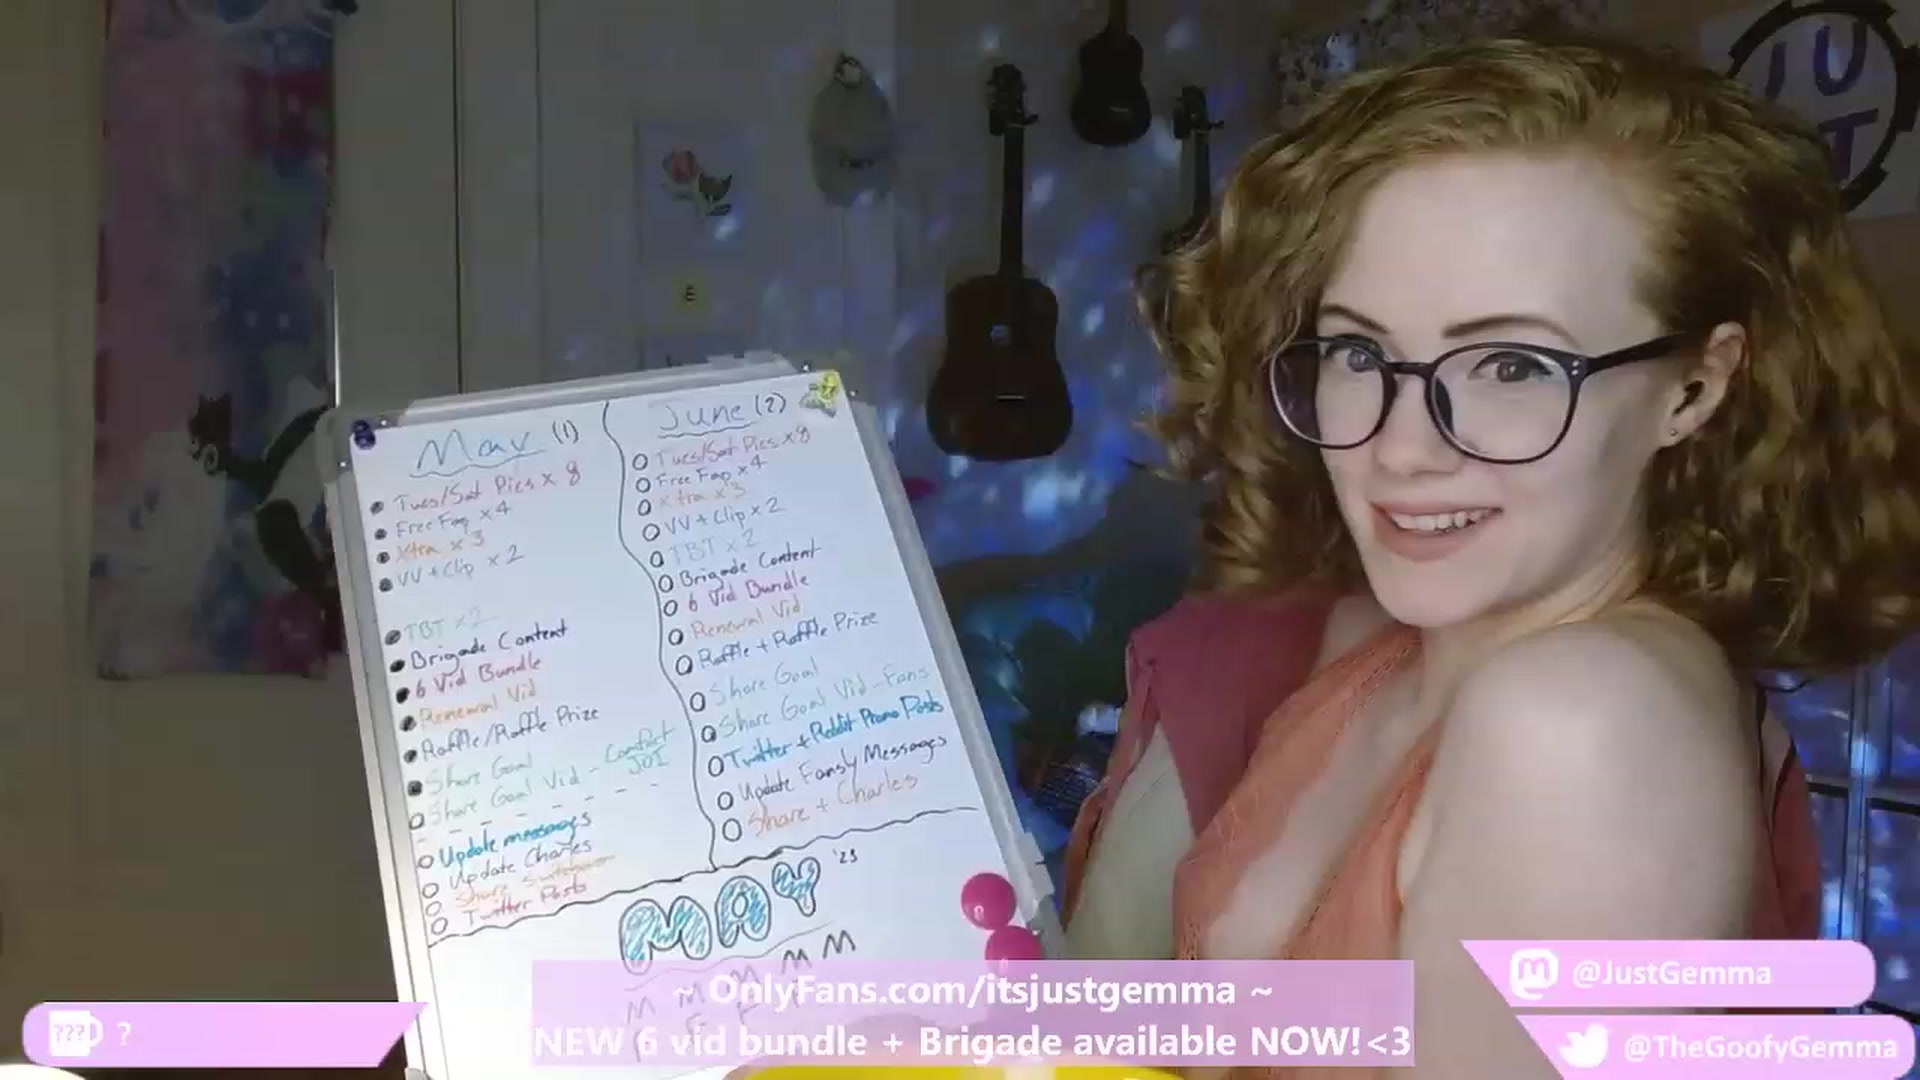 JU
T
May (1)
Tues/Sat Pics x 8
Free Fap x4
Xtra x 3
VV + Clip x 2
TBT x2
Brigade Content
6 Vid Bundle
Renewal Vid
Raffle/Raffle Prize
Share Goal
Share Goal Vid - Comfort JOI
Update messages
Update Charles
Share
Twitter Posts
June (2)
Tues/Sat Pics x8
Free Fap x4
Xtra x3
VV + Clip x 2
TBT x 2
Brigade Content
6 Vid Bundle
Renewal Vid
Raffle + Raffle Prize
Share Goal
Share Goal Vid - Fans
Twitter + Reddit Promo Posts
Update Fansly Messages
Share + Charles
MAY '23
M M M M M
~ OnlyFans.com/itsjustgemma ~
NEW 6 vid bundle + Brigade available NOW!<3
??? ?
@JustGemma
@TheGoofyGemma